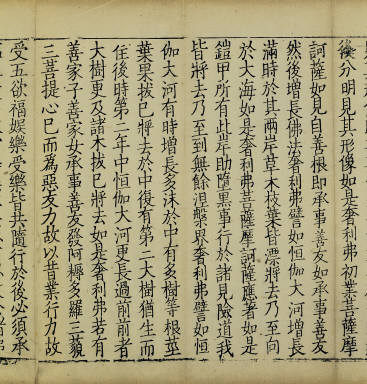 後分明見其形像如是奢利弗初業菩薩摩
訶薩如見自善根即承事善友如承事善友
然後增長佛法奢利弗譬如恒伽大河增長
滿時於其兩岸草木枝葉甘漂將去乃至向
於大海如是奢利弗菩薩摩訶薩應著如是
鎧甲所有此岸助墮黑事行於諸見險道我
皆將去乃至到無餘涅槃界奢利弗譬如恒
伽大河有時增長多沫於中有多樹等根莖
葉果拔已將去於中復有第二大樹猶生而
住後時第二年中恒伽大河更長過前前者
大樹更及諸木拔已將去如是奢利弗若有
善家子善家女承事善友發阿耨多羅三藐
三菩提心已而為惡友力故以昔業行力故
受五欲福娛樂受樂
隨行於後必須承